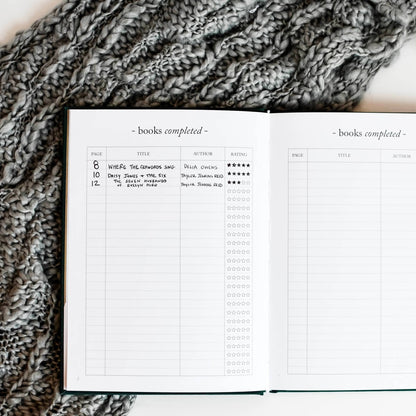 - books completed -
PAGE TITLE AUTHOR RATING
8 WHERE THE CRAWDADS SING DELIA OWENS ★★★★★
10 DAISY JONES + THE SIX TAYLOR JENKINS REID ★★★★★
12 THE SEVEN HUSBANDS TAYLOR JENKINS REID ★★★☆☆
OF EVELYN HUGO
- books completed -
PAGE TITLE AUTHOR